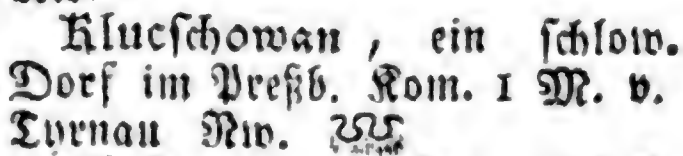 Klucſchowan, ein ſchlow.
Dorf im Preßb. Kom. 1 M. v.
Tyrnau Nw.